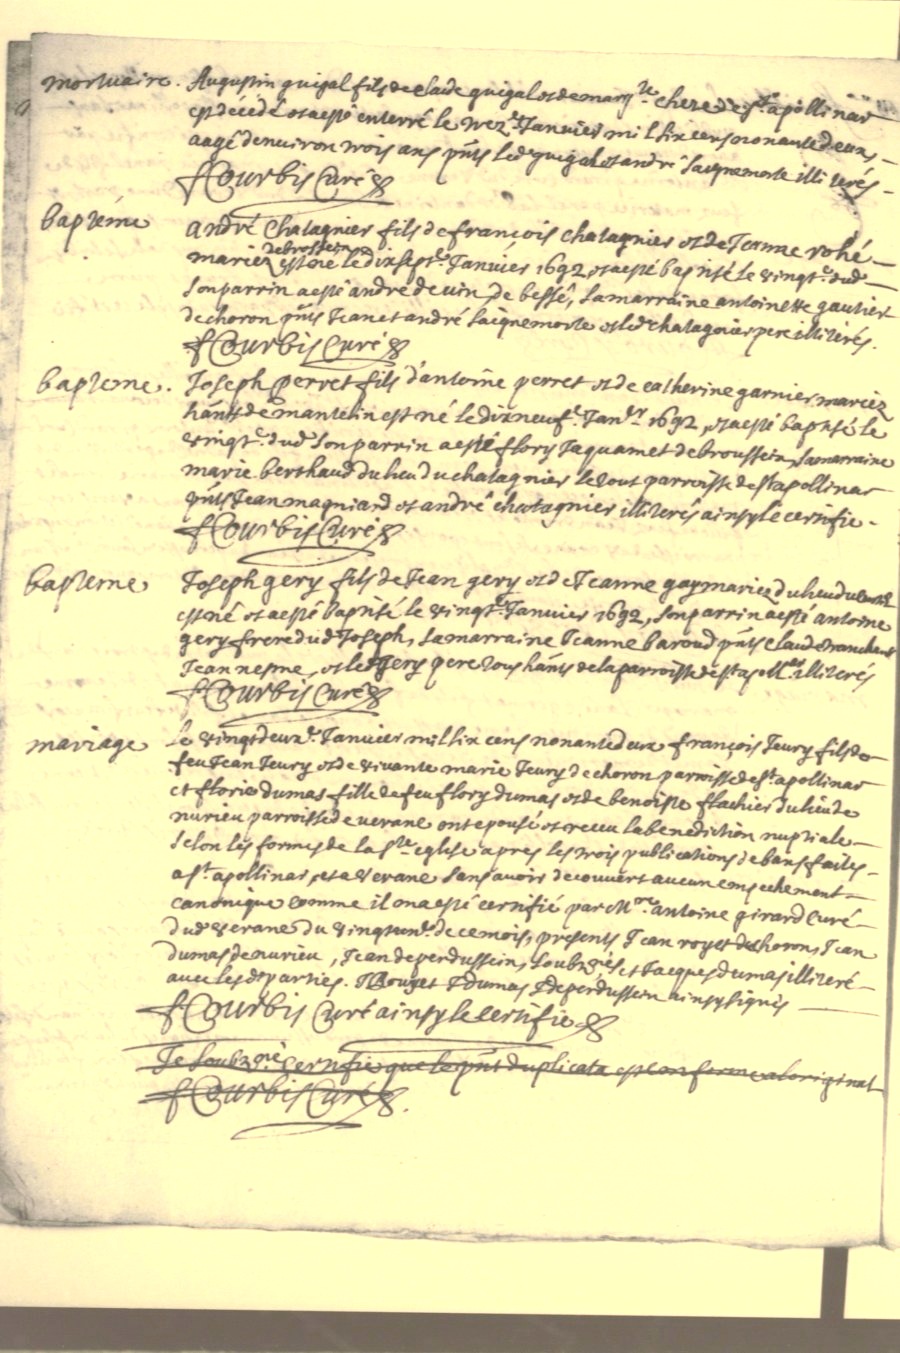 mortuaire. Augustin guigal fils de claude guigal et de marg.te cheze de st apollinar
est décédé et a esté enterré le trez.e Janvier mil six cens nonante deux
aagé d'environ trois ans pnts led guigal et andré saignemorte illiterés
F Courbis Curé
baptéme andré Chatagnier fils de françois chatagnier et de Jemme rohé
mariez de brossein est né le dix sept.e Janvier 1692, et a esté baptisé le vingt.e dud
son parrin a esté andré de vin de bessé, sa marraine antoinette gautier
de choron pnts Jean et andré saignemorte et led chatagnier pere illiterés.
F Courbis Curé
bapteme. Joseph perret fils d'antoine perret et de catherine garnier mariez
hants de mantelin est né le dix neuf.e Janvr 1692, et a esté baptisé le
vingt.e dud son parrin a esté flory Jaquamet de broussein, sa marraine
marie berthaud du lieu du chatagnier le tout parroisse de st apollinar
pnts Jean magniard et andré chatagnier illiterés ainsy le certifie.
F Courbis Curé
bapteme Joseph gery fils de Jean gery et de Jeanne gay mariez du lieu du
est né et a esté baptisé le vingt.e Janvier 1692, son parrin a esté antoine
gery frere dud Joseph, sa marraine Jeanne baroud pnts claude
Jean nesme, et led gery pere tous hants de la parroisse de st apoll.es illiterés
F Courbis Curé
mariage Le vingt deux.e Janvier mil six cens nonante deux françois Jeury fils de
feu Jean Jeury et de vivante marie Jeury de choron parroisse de st apollinar
et florie dumas fille de feu flory dumas et de benoiste flachier du lieu de
nurieu parroisse de verane ont epousé et receu la benediction nuptiale
selon les formes de la ste eglise apres les trois publications de bans faites
a st apollinar, et a verane sans avoir decouvert aucun empechement
canonique comme il m'a esté certifié par Mre antoine girard Curé
dud verane du vingt un.e de ce mois, presents Jean royet de choron, Jean
dumas de nurieu, Jean deperdussein, soubz.nés et Jacques dumas illiteré
avec les dt parties. J Rouyet J dumas J deperdussein ainsy signés
F Courbis Curé ainsy le certifie
Je soubz.né certifie que le pnt duplicata est conforme a loriginal
F Courbis Curé.